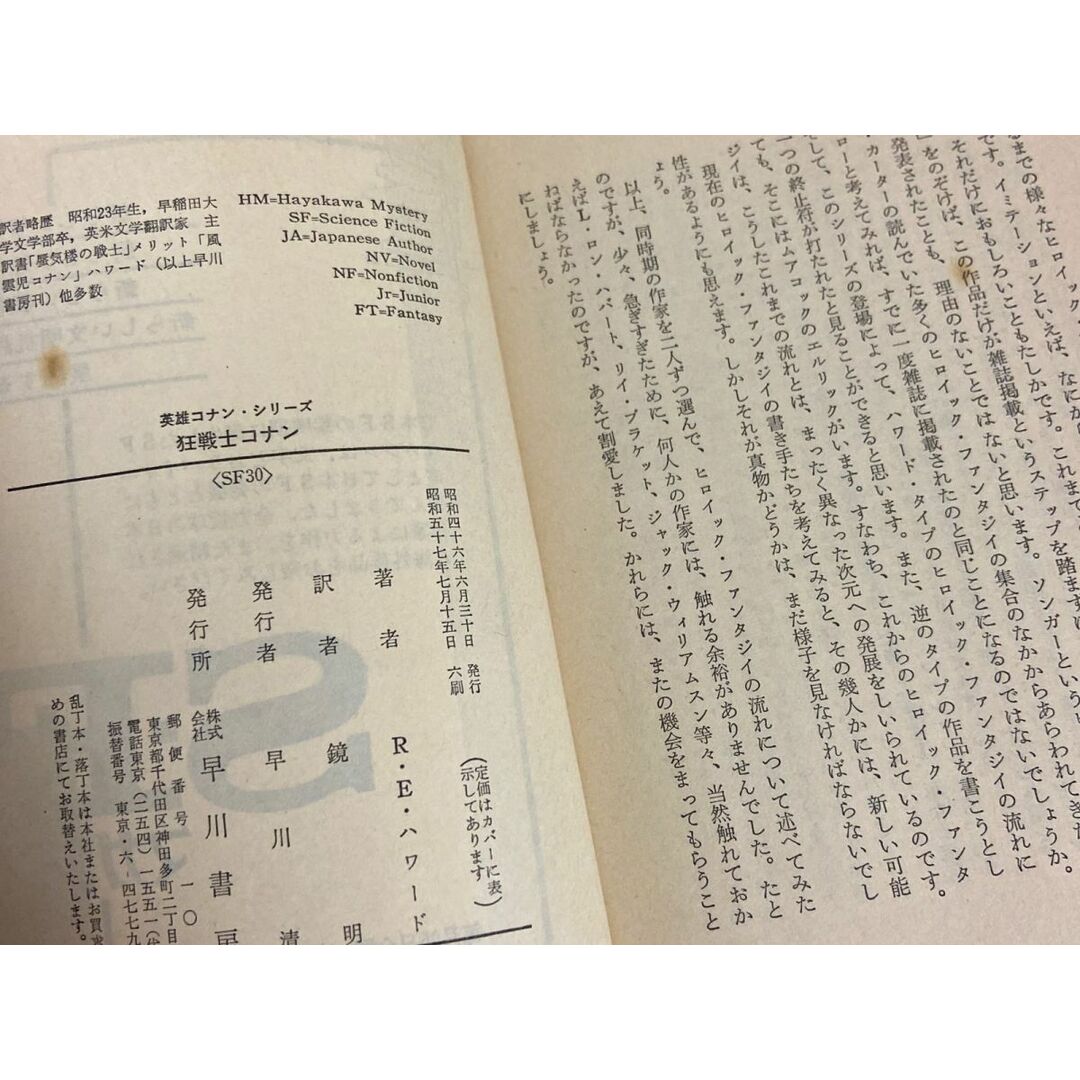 るまでの様々なヒロイック・
です。イミテーションといえば、なにか
それだけにおもしろいこともたしかです。これまで
」をのぞけば、この作品だけが雑誌掲載というステップを踏まずに
発表されたことも、理由のないことではないと思います。ソンガーという
・カーターの読んでいた多くのヒロイック・ファンタジイの集合のなかからあらわれてきた
ローと考えてみれば、すでに一度雑誌に掲載されたのと同じことになるのではないでしょうか。
そして、このシリーズの登場によって、ハワード・タイプのヒロイック・ファンタジイの流れに
一つの終止符が打たれたと見ることができると思います。また、逆のタイプの作品を書こうとし
ても、そこにはムアコックのエルリックがいます。すなわち、これからのヒロイック・ファンタ
ジイは、こうしたこれまでの流れとは、まったく異なった次元への発展をしいられているのです。
現在のヒロイック・ファンタジイの書き手たちを考えてみると、その幾人かには、新しい可能
性があるようにも思えます。しかしそれが真物かどうかは、まだ様子を見なければならないでし
ょう。
以上、同時期の作家を二人ずつ選んで、ヒロイック・ファンタジイの流れについて述べてみた
のですが、少々、急ぎすぎたために、何人かの作家には、触れる余裕がありませんでした。たと
えばL・ロン・ハバート、リイ・ブラケット、ジャック・ウィリアムスン等々、当然触れておか
ねばならなかったのですが、あえて割愛しました。かれらには、またの機会をまってもらうこと
にしましょう。
HM=Hayakawa Mystery
SF=Science Fiction
JA=Japanese Author
NV=Novel
NF=Nonfiction
Jr=Junior
FT=Fantasy
訳者略歴 昭和23年生,早稲田大
学文学部卒,英米文学翻訳家 主
訳書「蜃気楼の戦士」メリット「風
雲児コナン」ハワード(以上早川
書房刊)他多数
英雄コナン・シリーズ
狂戦士コナン
〈SF30〉
昭和四十六年六月三十日 発行
昭和五十七年七月十五日 六刷
(定価はカバーに表
示してあります)
著者 R・E・ハワード
訳者 鏡明
発行者 早川清
発行所 株式会社 早川書房
郵便番号 一〇
東京都千代田区神田多町二丁目
電話東京(二五四)一五五一(代
振替番号 東京・六-四七七九
乱丁本・落丁本は本社またはお買求
めの書店にてお取替えいたします。